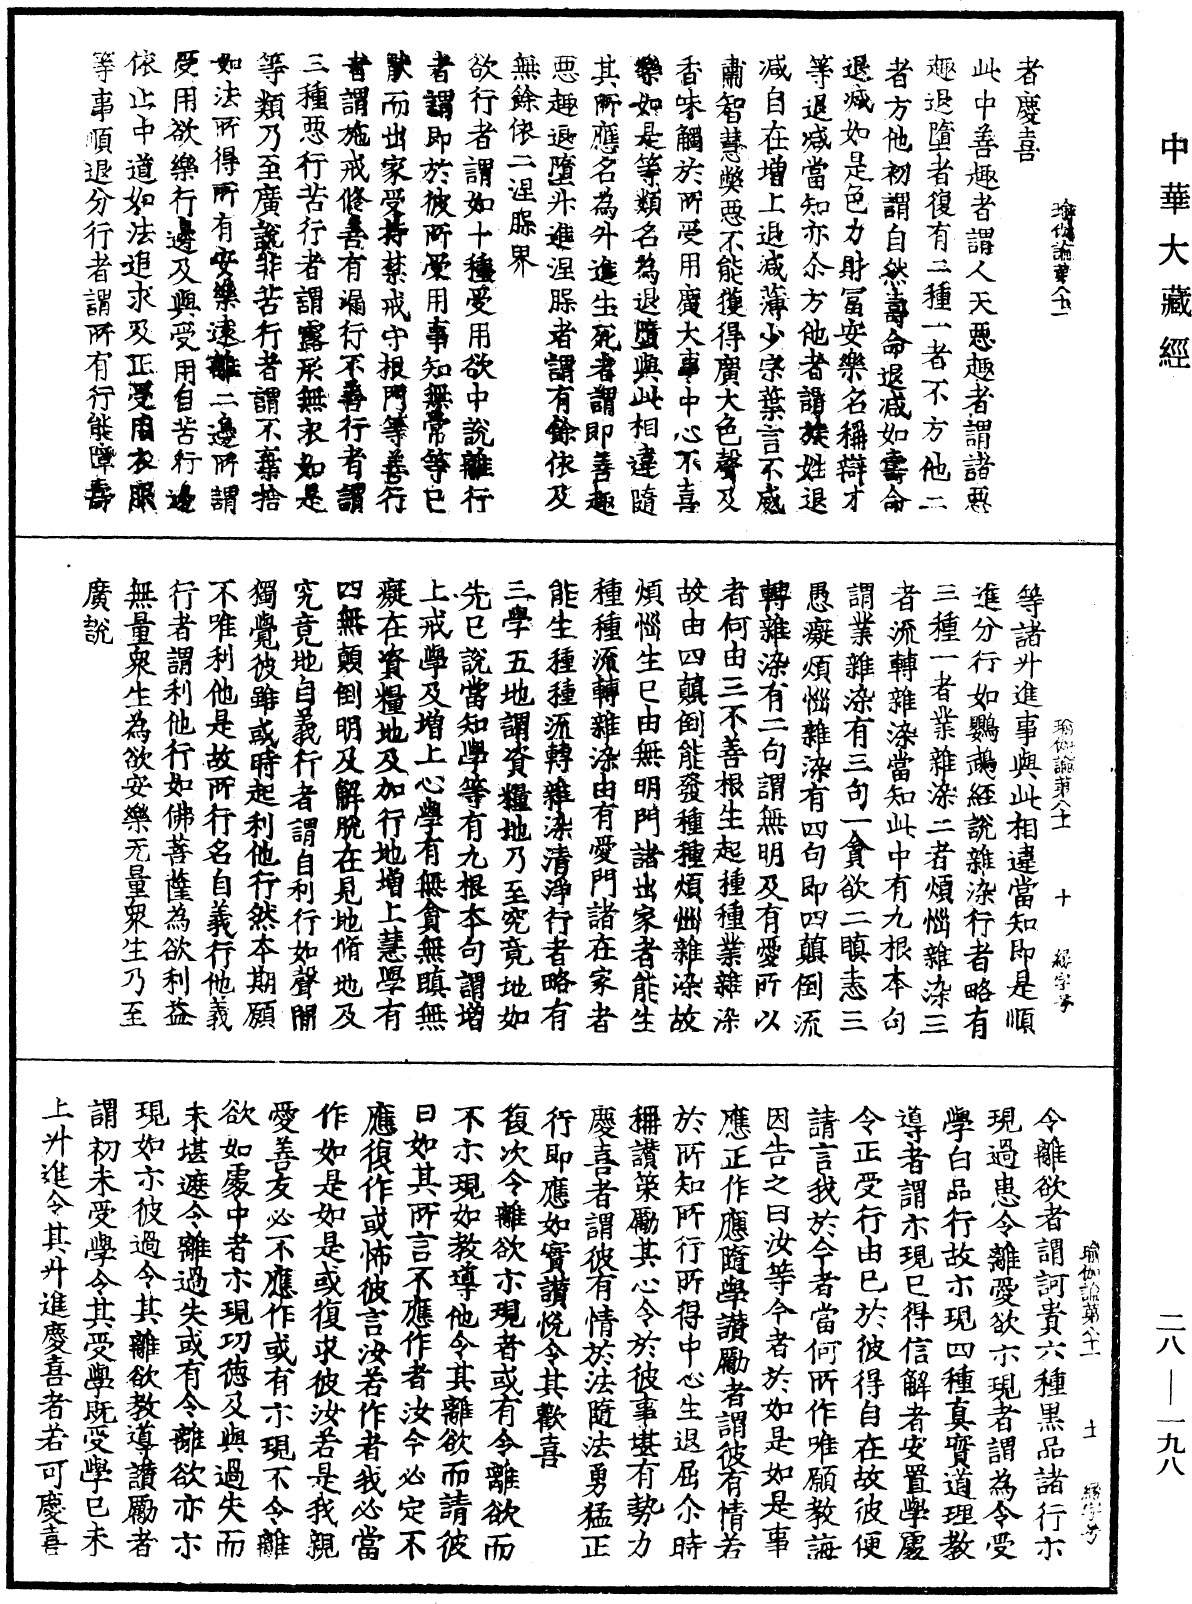 中華大藏經
者慶喜
此中善趣者謂人天惡趣者謂諸惡
趣退墮者復有二種一者不方他二
者方他初謂自然壽命退減如壽命
退減如是色力財富安樂名稱辯才
等退減當知亦尒方他者謂族姓退
減自在增上退減薄少宗葉言不威
肅智慧獘惡不能獲得廣大色聲及
香味觸於所受用廣大事中心不喜
樂如是等類名為退墮與此相違隨
其所應名為升進生死者謂即善趣
惡趣退墮升進涅槃者謂有餘依及
無餘依二涅槃界
欲行者謂如十種受用欲中說離行
者謂即於彼所受用事知無常等已
猒而出家受持禁戒守根門等善行
者謂施戒修善有漏行不善行者謂
三種惡行苦行者謂露形無衣如是
等類乃至廣說非苦行者謂不棄捨
如法所得所有安樂遠離二邊所謂
受用欲樂行邊及與受用自苦行邊
依止中道如法追求及正受用衣服
等事順退分行者謂所有行能障壽
瑜伽論第八十一
等諸升進事與此相違當知即是順
進分行如鸚鵡經說雜染行者略有
三種一者業雜染二者煩惱雜染三
者流轉雜染當知此中有九根本句
謂業雜染有三句一貪欲二瞋恚三
愚癡煩惱雜染有四句即四顛倒流
轉雜染有二句謂無明及有愛所以
者何由三不善根生起種種業雜染
故由四顛倒能發種種煩惱雜染故
煩惱生已由無明門諸出家者能生
種種流轉雜染由有愛門諸在家者
能生種種流轉雜染清淨行者略有
三學五地謂資糧地乃至究竟地如
先已說當知學等有九根本句謂增
上戒學及增上心學有無貪無瞋無
癡在資糧地及加行地增上慧學有
四無顛倒明及解脫在見地脩地及
究竟地自義行者謂自利行如聲聞
獨覺彼雖或時起利他行然本期願
不唯利他是故所行名自義行他義
行者謂利他行如佛菩薩為欲利益
無量衆生為欲安樂无量衆生乃至
廣說
瑜伽論第八十一 十 經字号
令離欲者謂訶責六種黑品諸行示
現過患令離愛欲示現者謂為令受
學白品行故示現四種真實道理教
導者謂示現已得信解者安置學處
令正受行由已於彼得自在故彼便
請言我於今者當何所作唯願教誨
因告之曰汝等今者於如是如是事
應正作應隨學讚勵者謂彼有情若
於所知所行所得中心生退屈尒時
稱讚策勵其心令於彼事堪有勢力
慶喜者謂彼有情於法隨法勇猛正
行即應如實讚悅令其歡喜
復次令離欲示現者或有令離欲而
不示現如教導他令其離欲而請彼
曰如其所言不應作者汝今必定不
應復作或怖彼言汝若作者我必當
作如是如是或復求彼汝若是我親
愛善友必不應作或有示現不令離
欲如處中者示現功德及與過失而
未堪遮令離過失或有令離欲亦示
現如示彼過令其離欲教導讚勵者
謂初未受學令其受學既受學已未
上升進令其升進慶喜者若可慶喜
瑜伽論第八十一 土 經字号
二八—一九八